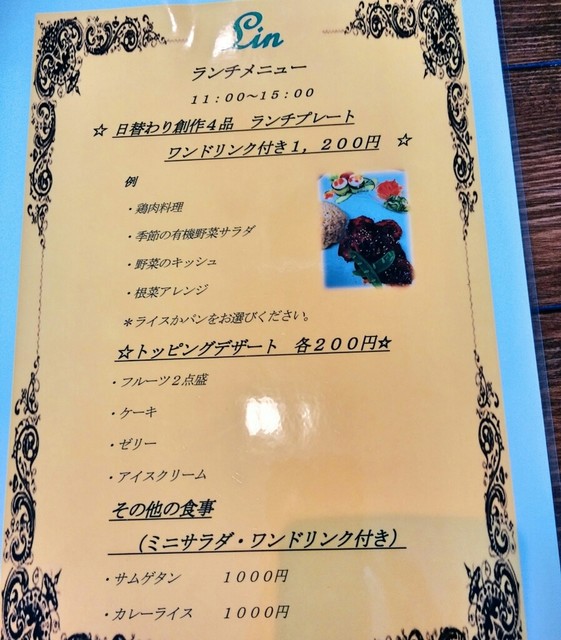 Lin
ランチメニュー
11:00～15:00
☆日替わり創作４品　ランチプレート
ワンドリンク付き１，２００円　☆
例
・鶏肉料理
・季節の有機野菜サラダ
・野菜のキッシュ
・根菜アレンジ
＊ライスかパンをお選びください。
☆トッピングデザート　各２００円☆
・フルーツ２点盛
・ケーキ
・ゼリー
・アイスクリーム
その他の食事
（ミニサラダ・ワンドリンク付き）
・サムゲタン　　１０００円
・カレーライス　　１０００円